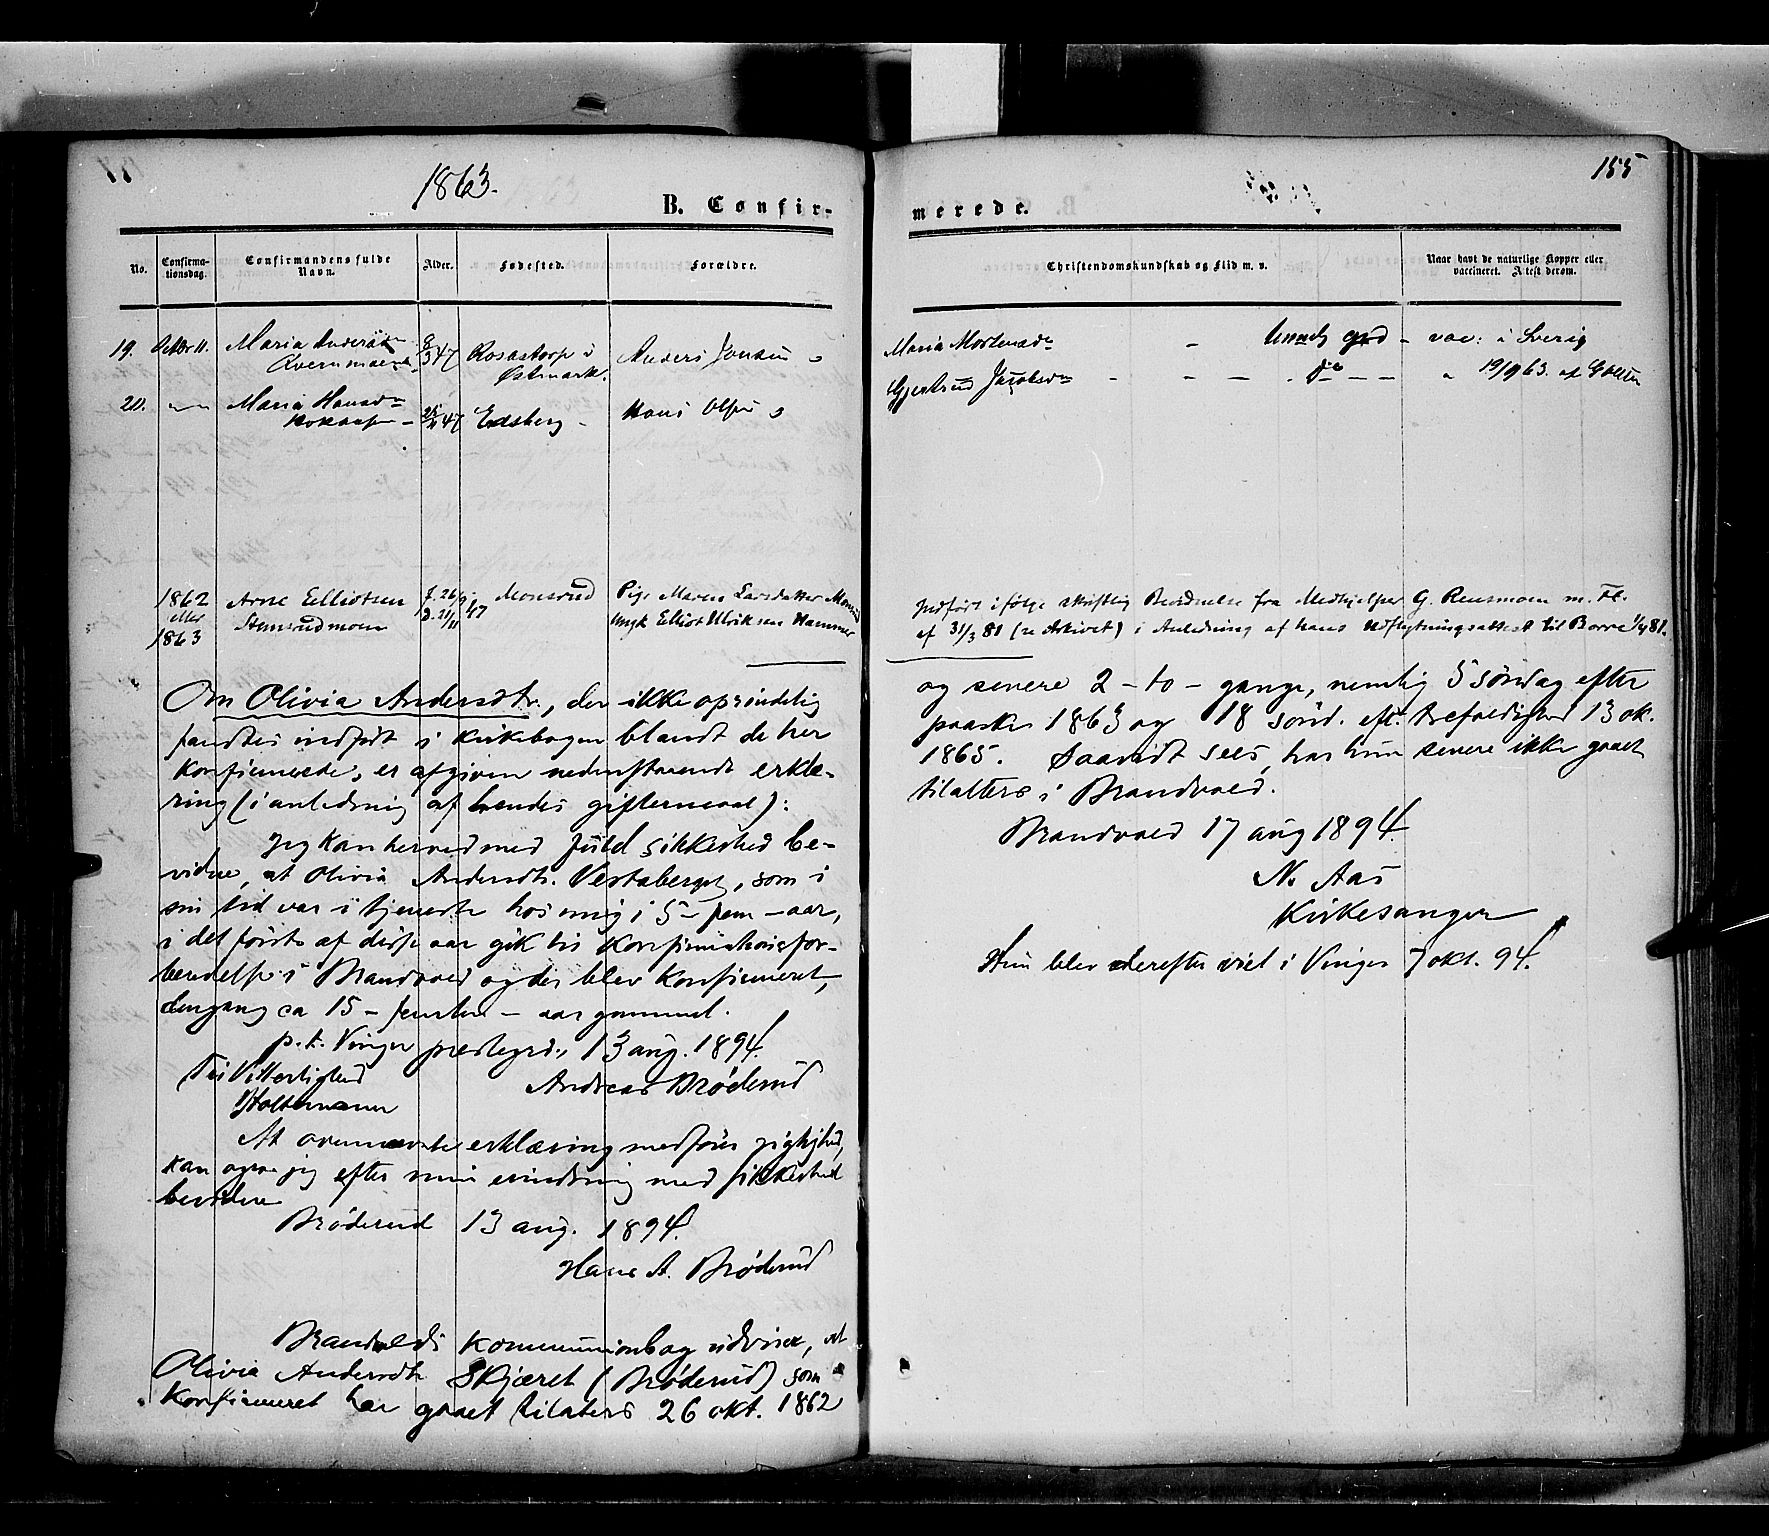 1863.
155
B. Confir-
merede.
No.
Confirma-
tionsdag.
Confirmandens fulde
Navn.
Alder.
Fødested.
Forældre.
Christendomskundskab og Flid m. v.
Naar havt de naturlige Kopper eller
vaccineret. Attest derom.
19. Oktbr 11. Maria 8/3 47 Rosastorp i Anders
Østmark.
Maria god - vac: i Sverig
20. Maria 47 Edsberg - Hans Olsen
Gjertrud Jacobsdn - do - 19/9 63. af
1862
eller
1863
Arne Elliotsen
Stensrudmoen
f. 26/9
d. 21/11
47
Monsrud
Pige Maren Larsdatter
Ungk Elliot Ulriksen Hammer
Indført ifølge skriftlig fra Medhjelper G. m. Fl.
af 31/3 81 (se Arkivet) i Anledning af hans Udflytningsattest til Borre 1/4 81.
Om Olivia Andersdtr., der ikke oprindelig
fandtes indført i kirkebogen blandt de her
konfirmerede, er afgiven nedenstaaende erklæ-
ring (i anledning af hendes giftermaal):
Jeg kan herved med fuld sikkerhed be-
vidne, at Olivia Andersdtr. Vestaberget, som i
sin tid var i tjeneste hos mig i 5 - fem - aar,
i det første af disse aar gik til konfirmationsfor-
beredelse i Brandvold og der blev konfirmeret,
dengang ca 15 - femten - aar gammel.
p. t. Vinger prestegrd., 13 aug. 1894.
Til Vitterlighed
Andreas Brøderud
Holtermann
At ovennævnte erklæring medfører rigtighed,
kan ogsaa jeg efter min erindring med sikkerhed
bevidne
Brøderud 13 aug. 1894.
Hans A. Brøderud
Brandvolds kommunionbog udviser, at
Olivia Andersdtr Skjæret (Brøderud) som
konfirmeret har gaaet tilalters 26 okt. 1862
og senere 2 - to - gange, nemlig 5 søndag efter
paaske 1863 og 18 sønd. eft. trefoldighed 13 ok.
1865. Saavidt sees, har hun senere ikke gaaet
tilalters i Brandvold.
Brandvold 17 aug 1894
N. Aas
Kirkesanger
Hun blev derefter viet i Vinger 7 okt. 94.